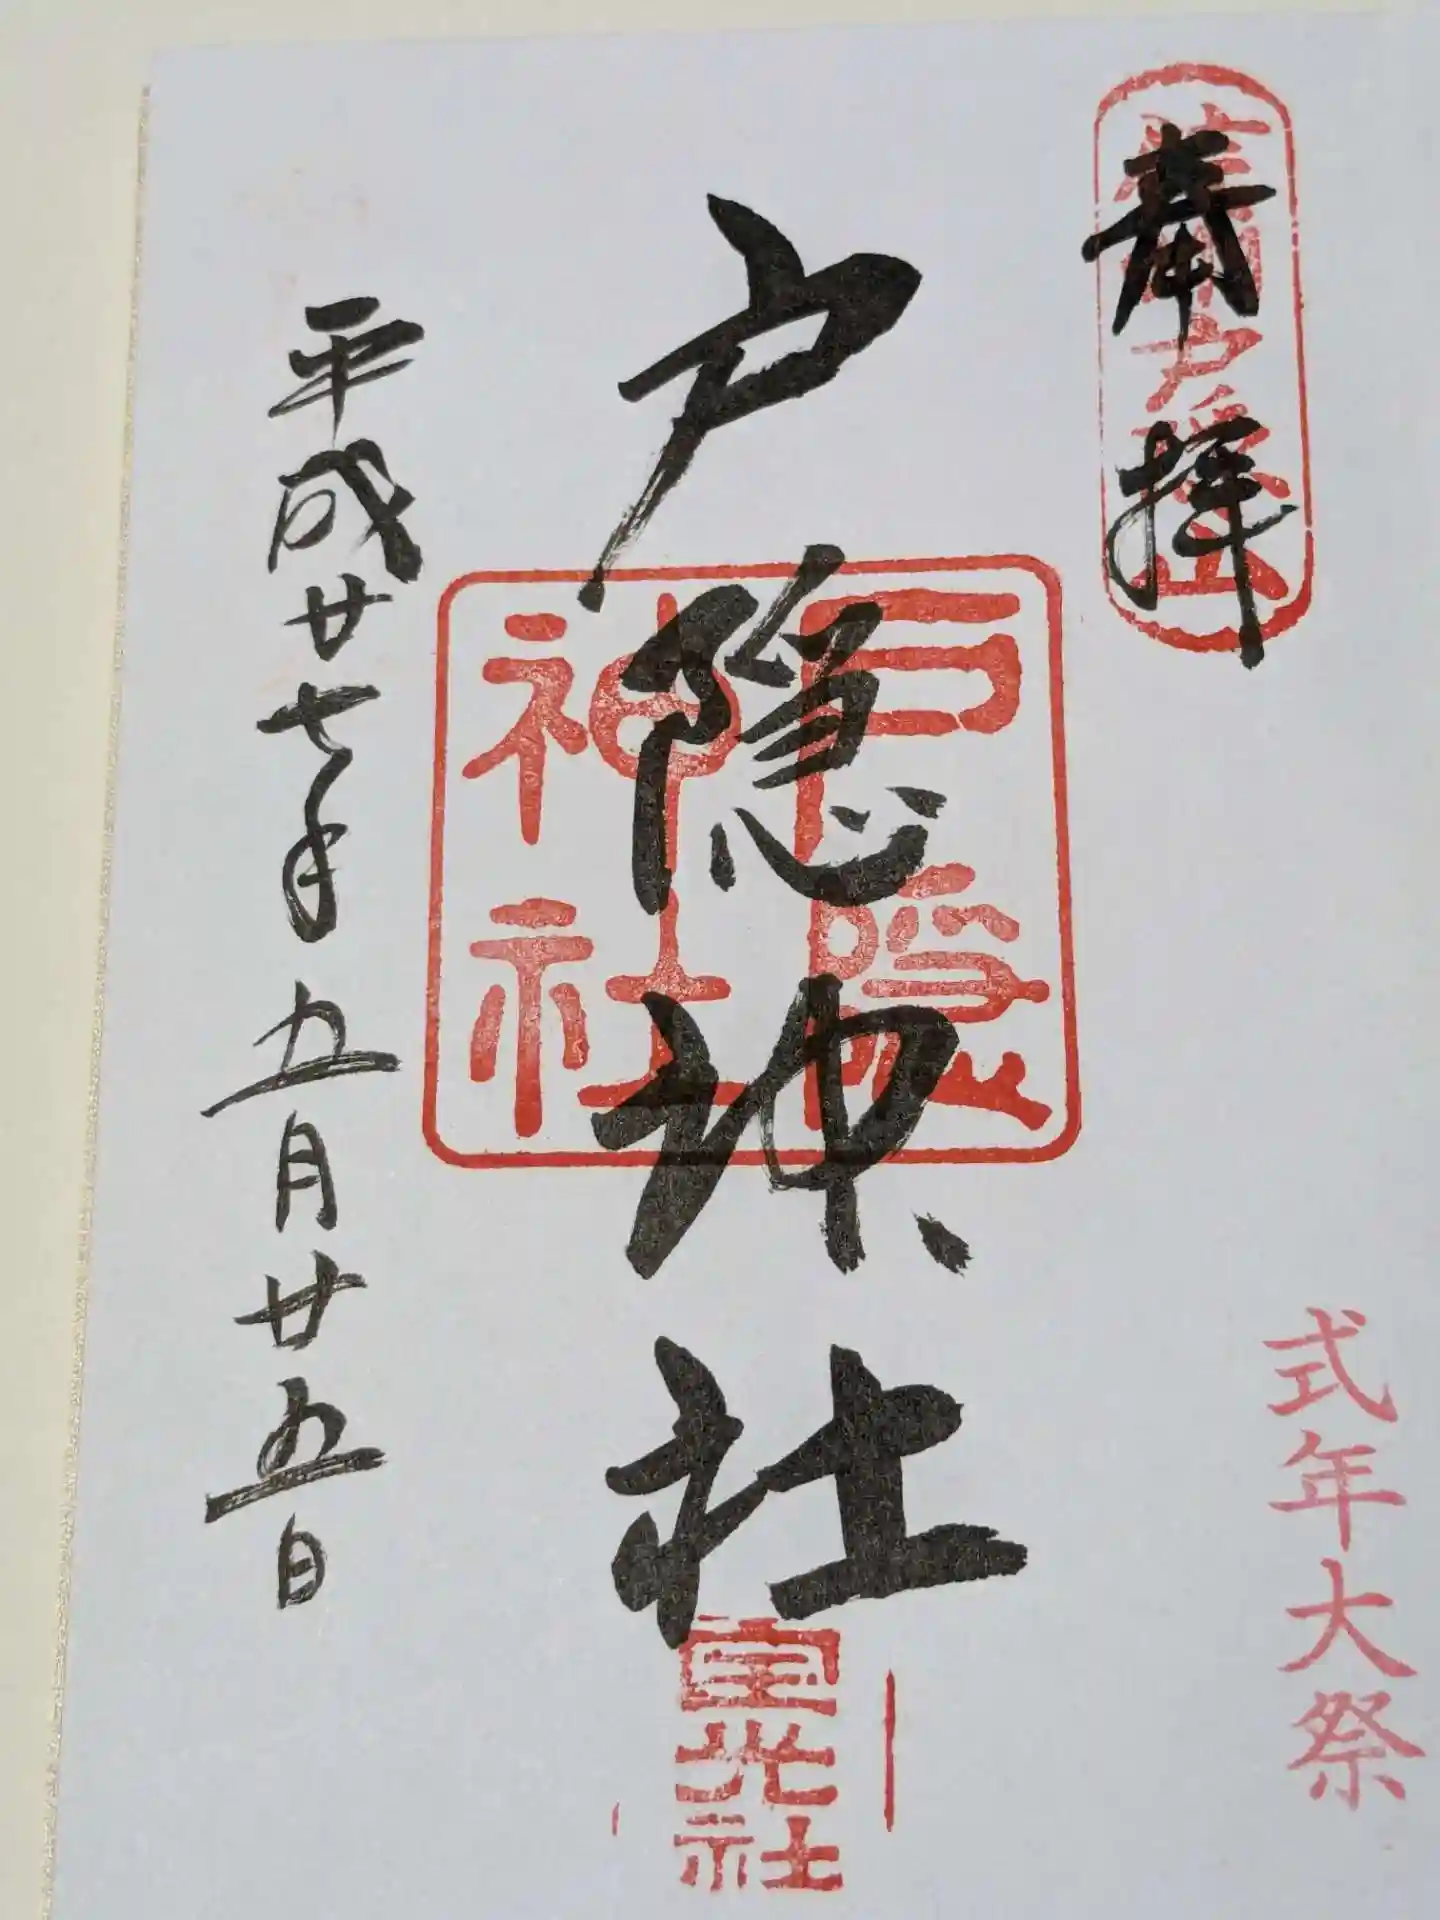 奉拝
信州戸隠山
式年大祭
戸隠神社
戸隠
神社
宝光社
平成廿七年五月廿五日